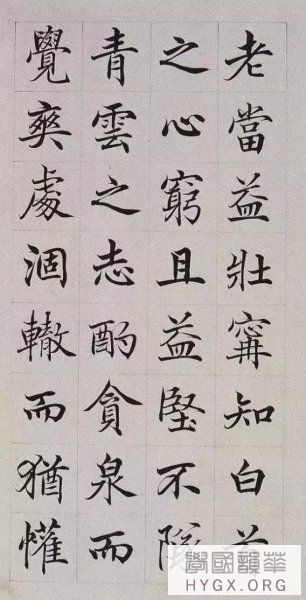 老當益壯寗知白首
之心窮且益堅不墜
青雲之志酌貪泉而
覺爽處涸轍而猶懽
學國韻華
HYGX.ORG